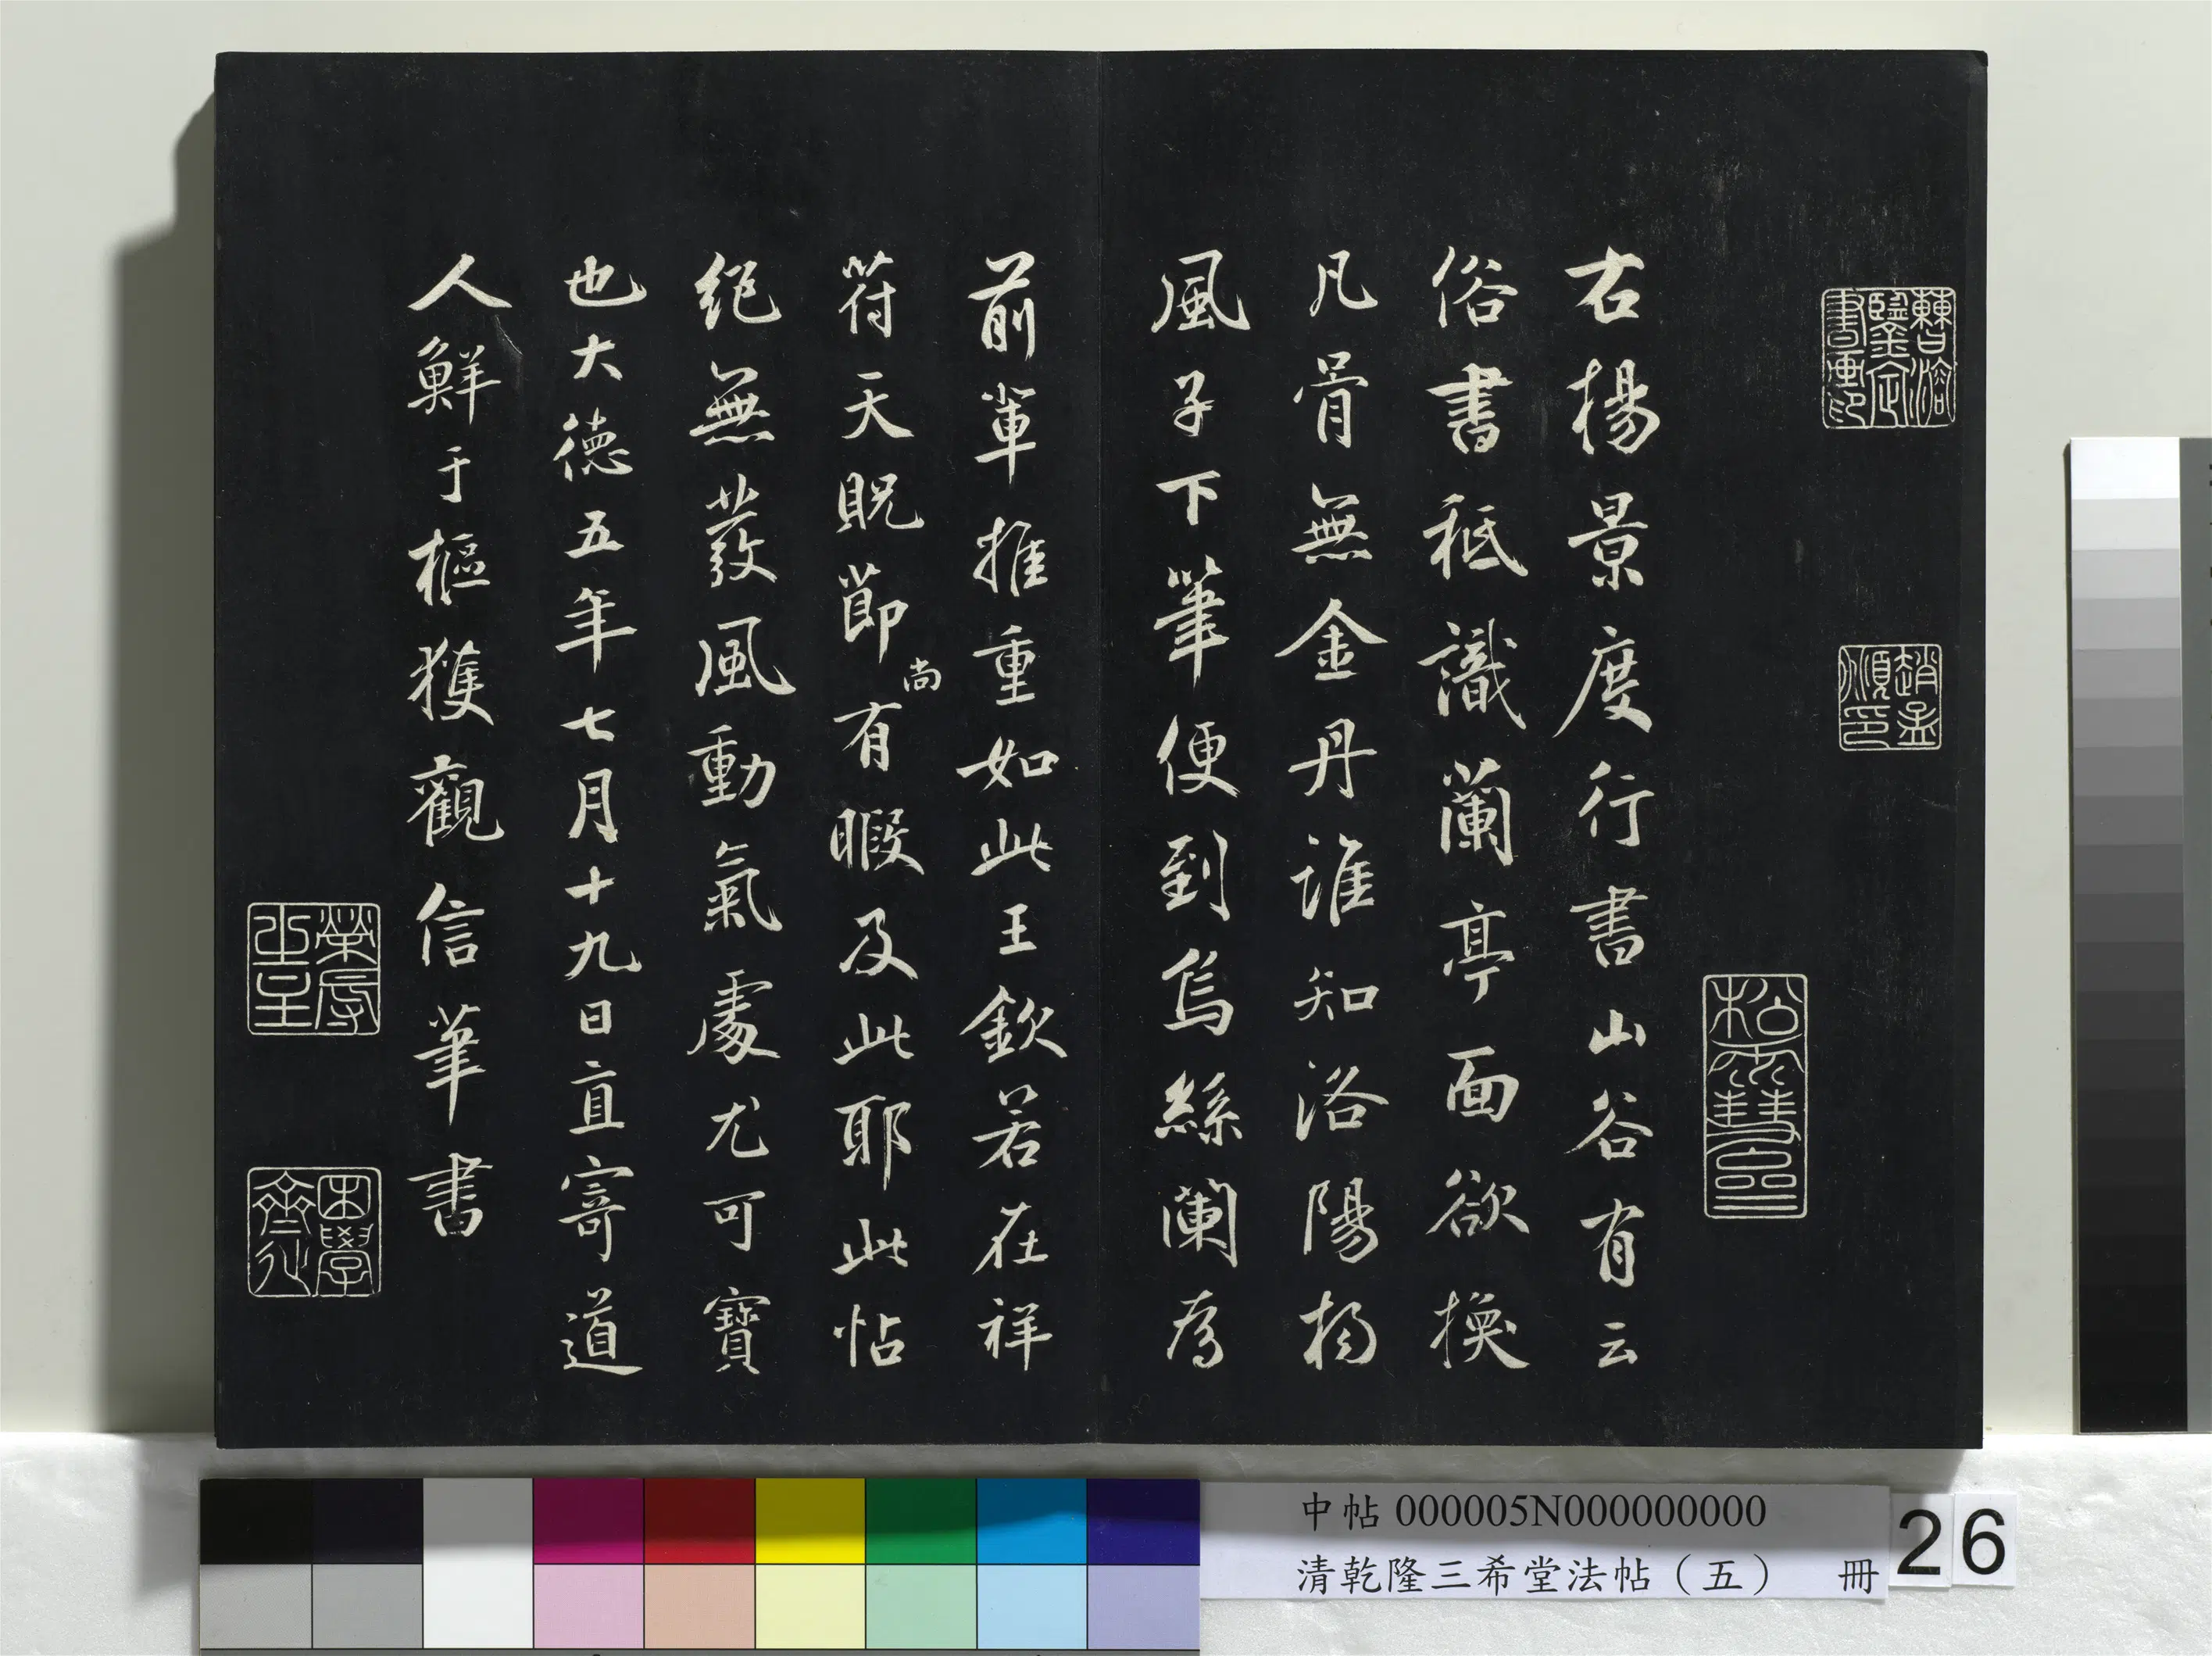 蘇溶
鑒定
書畫印
趙孟
順印
松雪齋
右楊景度行書山谷有云
俗書秖識蘭亭面欲換
凡骨無金丹誰知洛陽楊
風子下筆便到烏絲闌為
前輩推重如此王欽若在祥
符天貺節尚有暇及此耶此帖
絕無蔉風動氣處尤可寶
也大德五年七月十九日直寄道
人鮮于樞獲觀信筆書
困學
齋
中帖 000005N000000000
清乾隆三希堂法帖（五） 冊
26